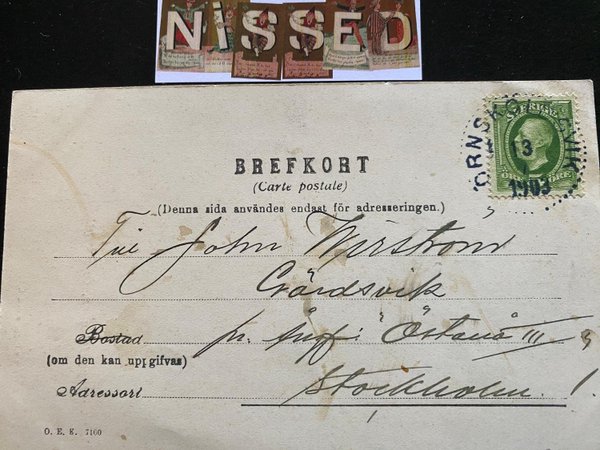 NISSED
SVERIGE
ÖRNSKÖLDSVIK
13
1903
BREFKORT
(Carte postale)
(Denna sida användes endast för adresseringen.)
Till John
Gärdsvik
Bostad pr. ångf: "Östanå III"
(om den kan uppgifvas)
Adressort Stockholm.!
O. E. K. 7160